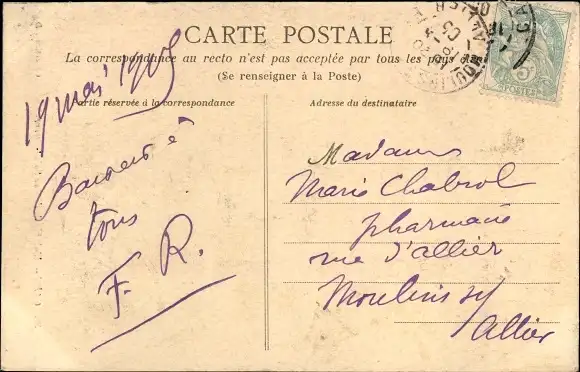 CARTE POSTALE
La correspondance au recto n'est pas acceptée par tous les pays
(Se renseigner à la Poste)
Partie réservée à la correspondance
Adresse du destinataire
19 mai 1905
à
tous
F. R.
Madame
Marie Chabrol
pharmacie
rue d'allier
Moulins s/
Allier
5c
POSTES